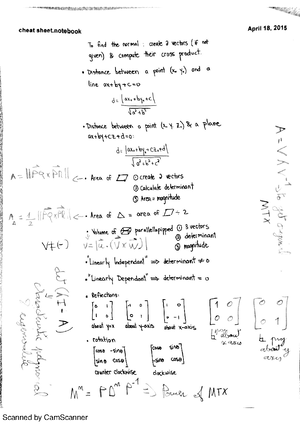 cheat sheet.notebook
April 18, 2015
To find the normal: create 2 vectors (if not
given) & compute their cross product.
• Distance between a point (x, y,) and a
line ax+by+c=0
d= |ax,+by,+c|
√a²+b²
• Distance between a point (x, y, z,) & a plane
ax+by+cz+d=0:
d= |ax,+by,+cz,+d|
√a²+b²+c²
• Area of ▱ ① create 2 vectors
② Calculate determinant
③ Area = magnitude
• Area of △ = area of ▱ ÷ 2
V≠(-)
• Volume of parallelepipped ① 3 vectors
② determinant
③ magnitude
V=|u·(v×w)|
• "Linearly Independent" ⇒ determinant ≠ 0
• "Linearly Dependent" ⇒ determinant = 0
• Reflections:
about y=x about y-axis about x-axis
• rotation
[cosθ -sinθ] [cosθ sinθ]
[sinθ cosθ] [-sinθ cosθ]
counter clockwise clockwise
Mⁿ = PDⁿP⁻¹ ⇒ Power of MTX
det(λI-A)
characteristic polynomial
eigenvalue
Scanned by CamScanner